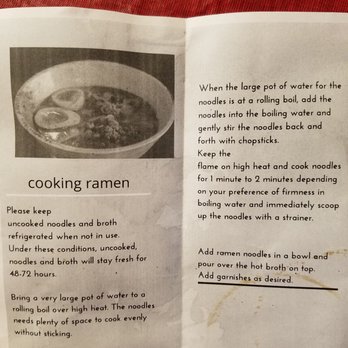 cooking ramen
Please keep
uncooked noodles and broth
refrigerated when not in use.
Under these conditions, uncooked,
noodles and broth will stay fresh for
48-72 hours.
Bring a very large pot of water to a
rolling boil over high heat. The noodles
needs plenty of space to cook evenly
without sticking.
When the large pot of water for the
noodles is at a rolling boil, add the
noodles into the boiling water and
gently stir the noodles back and
forth with chopsticks.
Keep the
flame on high heat and cook noodles
for 1 minute to 2 minutes depending
on your preference of firmness in
boiling water and immediately scoop
up the noodles with a strainer.
Add ramen noodles in a bowl and
pour over the hot broth on top.
Add garnishes as desired.